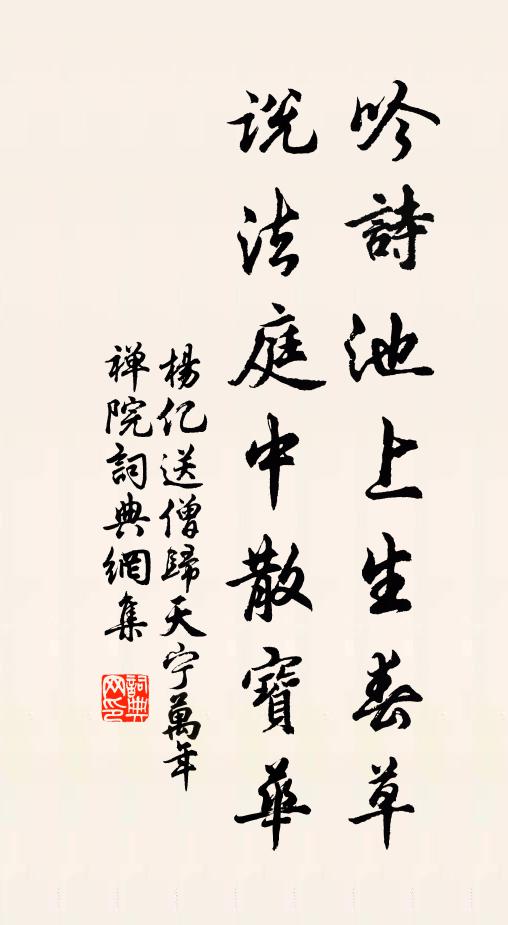 吟詩池上生春草
説法庭中散寶華
楊亿送僧歸天宁萬年
禅院詞典網集
詞典网印